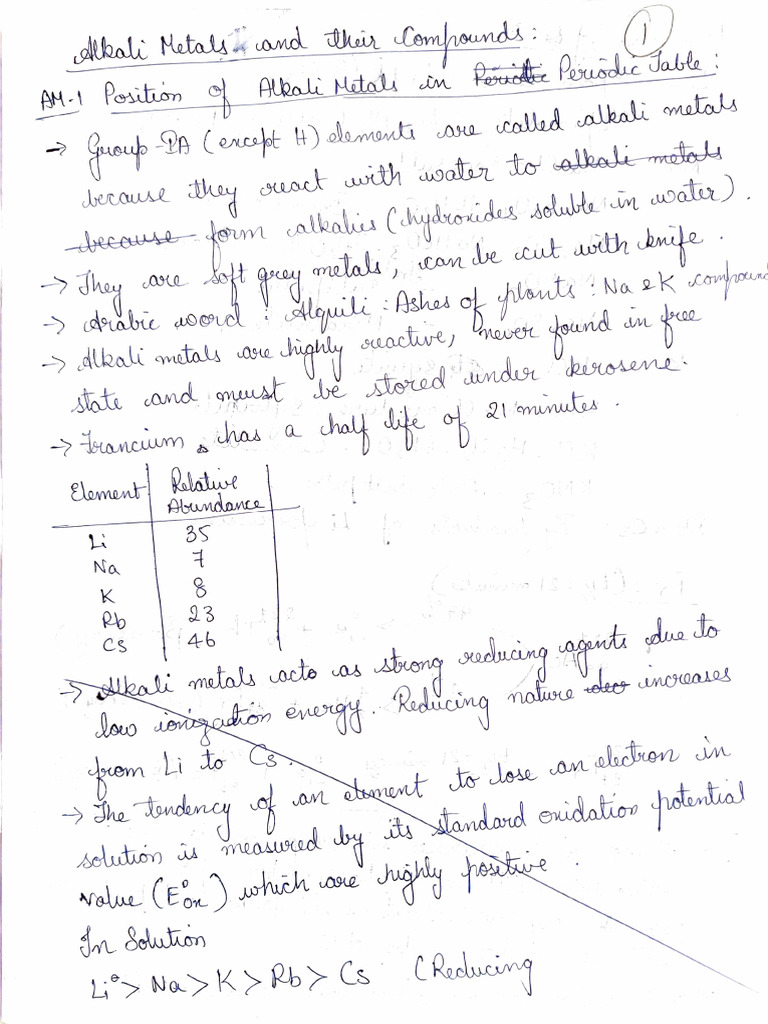 Alkali Metals and their Compounds: 1
AM.1 Position of Alkali Metals in Periodic Periodic Table:
→ Group-IA (except H) elements are called alkali metals
because they react with water to alkali metals
because form alkalies (hydroxides soluble in water).
→ They are soft grey metals, can be cut with knife.
→ Arabic word: Alquili: Ashes of plants: Na & K compound
→ Alkali metals are highly reactive, never found in free
state and must be stored under kerosene.
→ Francium has a half life of 21 minutes.
Element Relative
Abundance
Li 35
Na 7
K 8
Rb 23
Cs 46
→ Alkali metals acto as strong reducing agents due to
low ionization energy. Reducing nature dec increases
from Li to Cs.
→ The tendency of an element to lose an electron in
solution is measured by its standard oxidation potential
value (E°ox) which are highly positive.
In Solution
Li > Na > K > Rb > Cs (Reducing